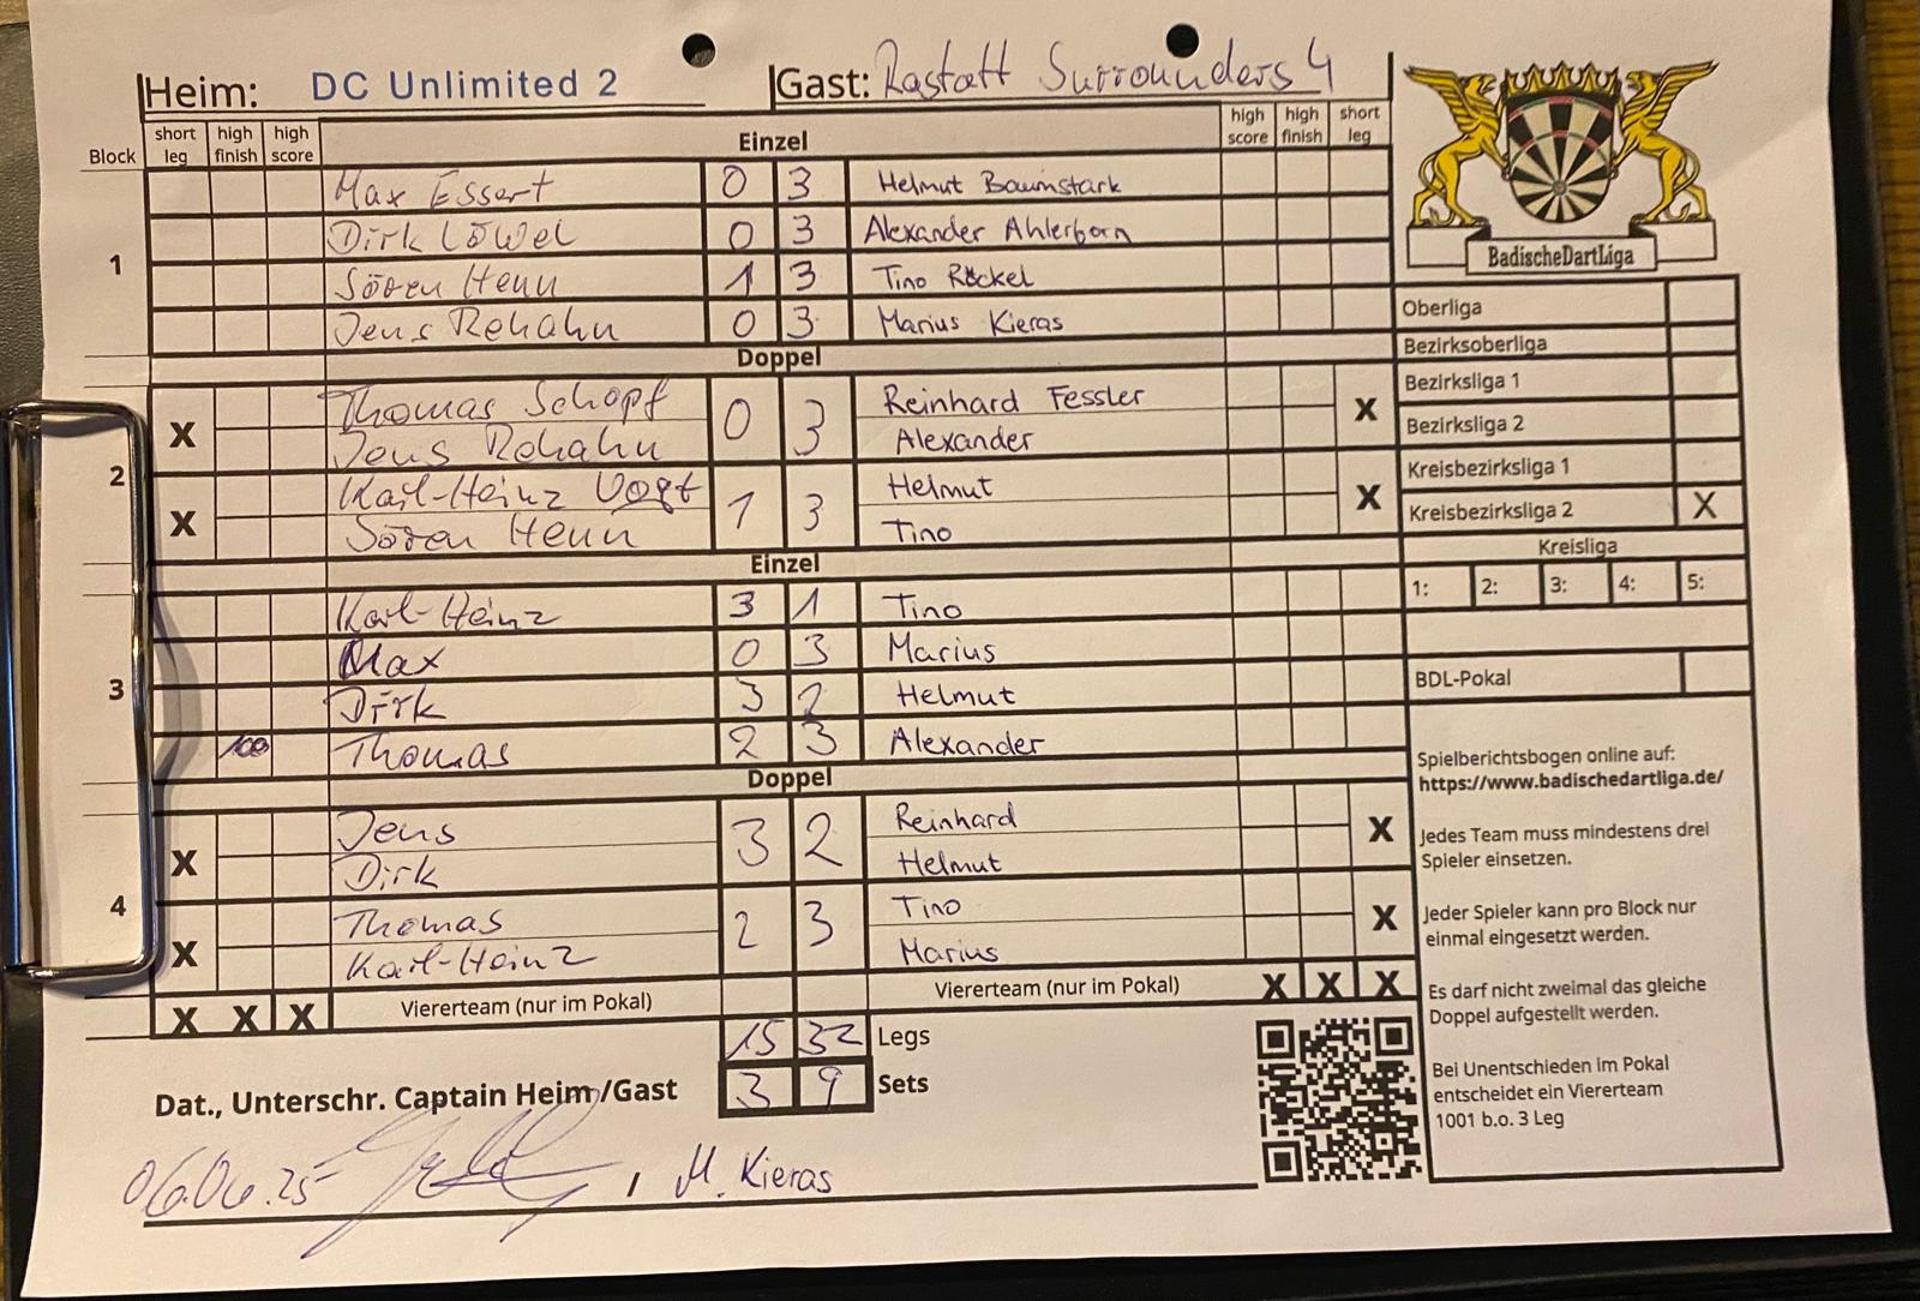 Heim: DC Unlimited 2 Gast: Rastatt Surrounders 4
Block short leg high finish high score Einzel high score high finish short leg
1
Max Essert 0 3 Helmut Baumstark
Dirk Löwel 0 3 Alexander Ahlerborn
Sören Henn 1 3 Tino Röckel
Jens Rehahn 0 3 Marius Kieras
Doppel
2
X Thomas Schopf 0 3 Reinhard Fessler X
Jens Rehahn Alexander
X Karl-Heinz Vogt 1 3 Helmut X
Sören Henn Tino
Einzel
3
Karl-Heinz 3 1 Tino
Max 0 3 Marius
Dirk 3 2 Helmut
100 Thomas 2 3 Alexander
Doppel
4
X Jens 3 2 Reinhard X
Dirk Helmut
X Thomas 2 3 Tino X
Karl-Heinz Marius
X X X Vierterteam (nur im Pokal) Viererteam (nur im Pokal) X X X
15 32 Legs
3 9 Sets
Dat., Unterschr. Captain Heim/Gast
06.06.25 / M. Kieras
BadischeDartLiga
Oberliga
Bezirksoberliga
Bezirksliga 1
Bezirksliga 2
Kreisbezirksliga 1
Kreisbezirksliga 2 X
Kreisliga
1: 2: 3: 4: 5:
BDL-Pokal
Spielberichtsbogen online auf:
https://www.badischedartliga.de/
Jedes Team muss mindestens drei
Spieler einsetzen.
Jeder Spieler kann pro Block nur
einmal eingesetzt werden.
Es darf nicht zweimal das gleiche
Doppel aufgestellt werden.
Bei Unentschieden im Pokal
entscheidet ein Viererteam
1001 b.o. 3 Leg